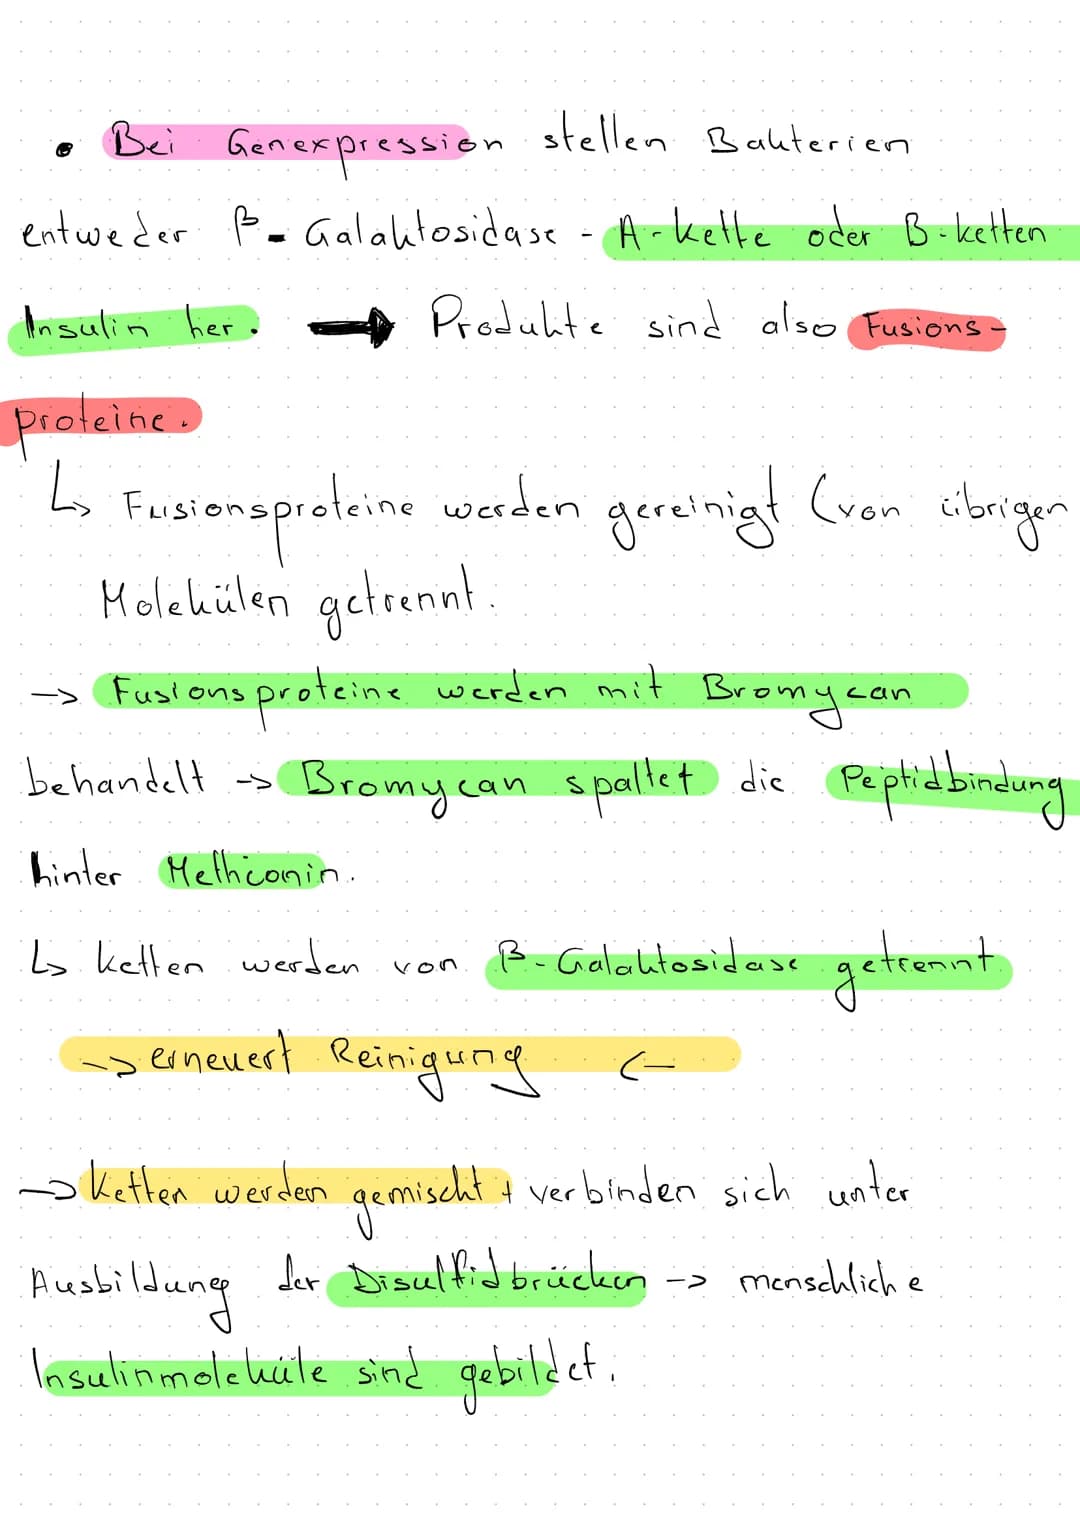 • Bei Genexpression stellen Bakterien
entweder β-Galaktosidase - A-kette oder B-ketten
Insulin her. → Produkte sind also Fusions-
proteine.
↳ Fusionsproteine werden gereinigt (von übrigen
Molekülen getrennt.
-> Fusionsproteine werden mit Bromycan
behandelt -> Bromycan spaltet die Peptidbindung
hinter Methionin.
↳ ketten werden von β-Galaktosidase getrennt
-> erneuert Reinigung <-
-> Ketten werden gemischt + verbinden sich unter
Ausbildung der Disulfidbrücken -> menschliche
Insulinmoleküle sind gebildet.